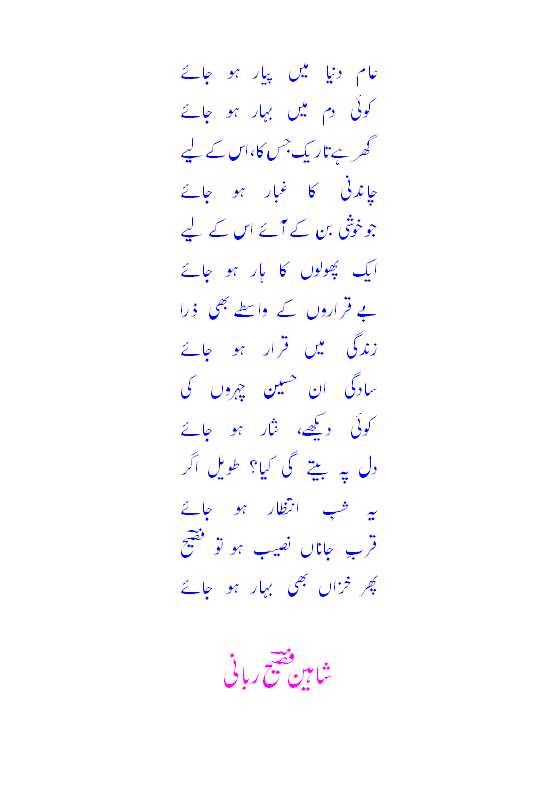 عام دنیا میں پیار ہو جائے
کوئی دم میں بہار ہو جائے
گھر ہے تاریک جس کا، اس کے لیے
چاندنی کا غبار ہو جائے
جو خوشی بن کے آئے اس کے لیے
ایک پھولوں کا ہار ہو جائے
بے قراروں کے واسطے بھی ذرا
زندگی میں قرار ہو جائے
سادگی ان حسین چہروں کی
کوئی دیکھے، نثار ہو جائے
دل پہ بیتے گی کیا؟ طویل اگر
یہ شبِ انتظار ہو جائے
قربِ جاناں نصیب ہو تو فصیحؔ
پھر خزاں بھی بہار ہو جائے
شاہین فصیحؔ ربانی